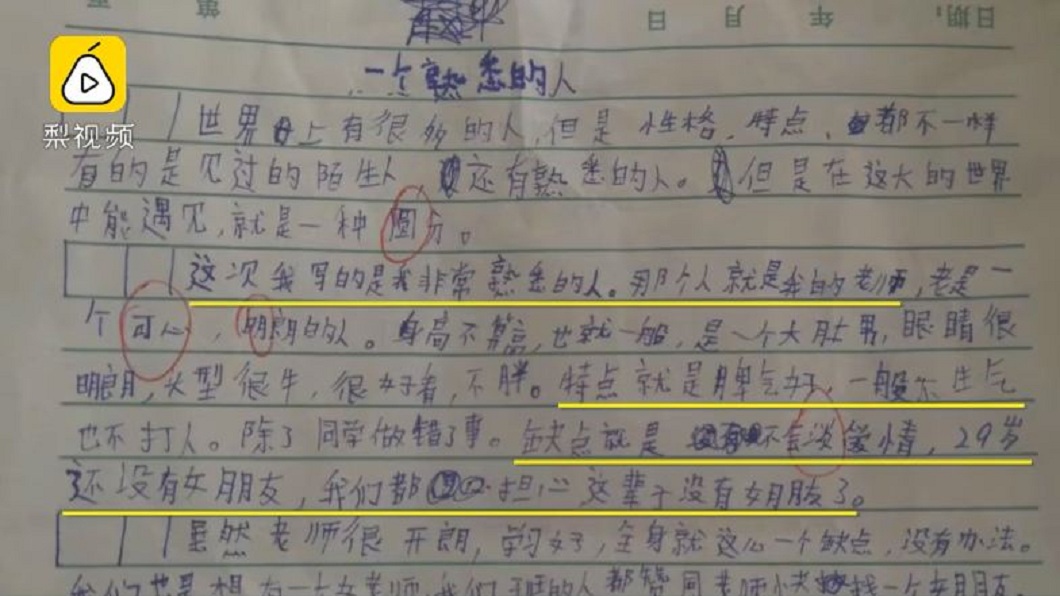 第 页 年 月 日 日期:
梨视频
一个熟悉的人
世界上有很多的人,但是性格,特点,都不一样
有的是见过的陌生人 还有熟悉的人。但是在这大的世界
中能遇见,就是一种圆分。
这次我写的是我非常熟悉的人。那个人就是我的老师,老是一
个可心,明朗的人。身高不算高,也就一般,是一个大肚男,眼睛很
明朗,头型很牛,很好看,不胖。特点就是脾气好,一般不生气
也不打人。除了同学做错了事。缺点就是不会谈爱情,29岁
还没有女朋友,我们都担心这辈子没有女朋友了。
虽然老师很开朗,学习好,全身就这么一个缺点,没有办法。
我们也是想有一个女老师,我们班的人都赞同老师快找一个女朋友